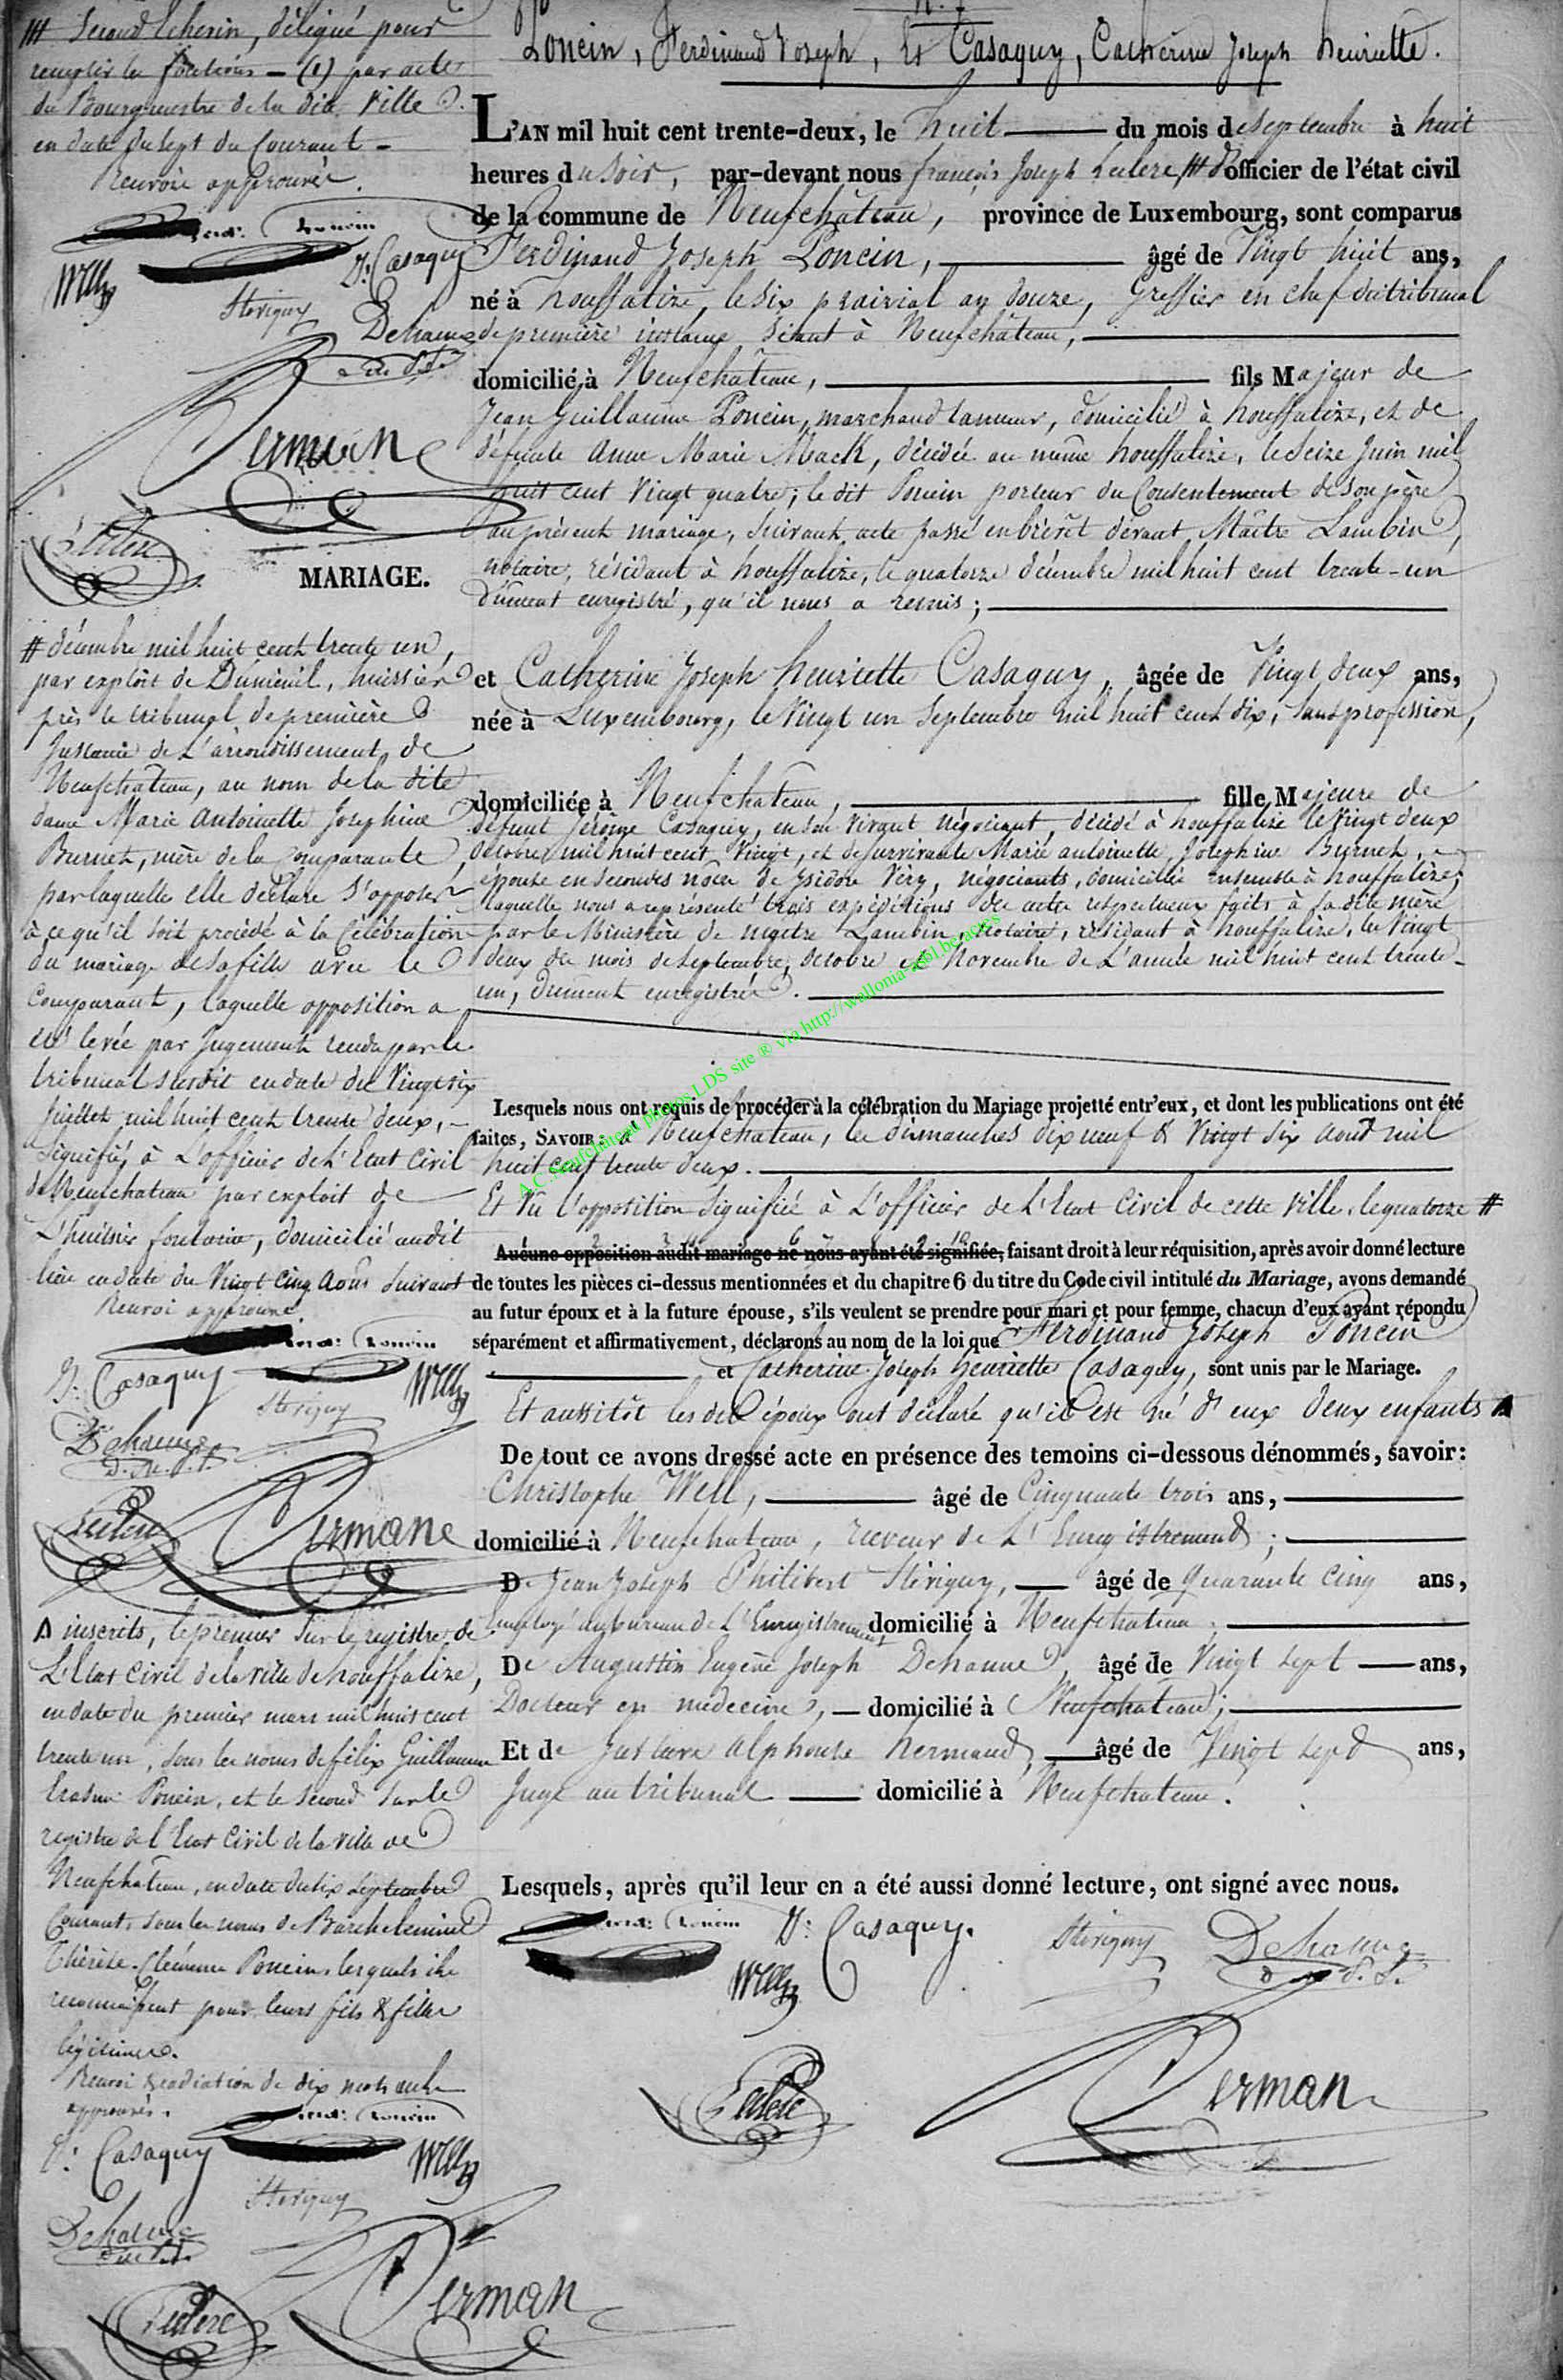 Poncin, Ferdinand Joseph, Et Casaquy, Catherine Joseph henriette.
L'AN mil huit cent trente-deux, le huit du mois de Septembre à huit
heures du Soir, par-devant nous françois Joseph Leclerc /// d'officier de l'état civil
de la commune de Neufchâteau, province de Luxembourg, sont comparus
Ferdinand Joseph Poncin, âgé de Vingt huit ans,
né à houffalize, le Six prairial an douze, Greffier en chef du tribunal
de première instance Séant à Neufchâteau,
domicilié à Neufchâteau, fils Majeur de
Jean Guillaume Poncin, marchand tanneur, domicilié à houffalize, et de
défunte Anne Marie Mack, décédée au même houffalize, le Seize Juin mil
huit cent Vingt quatre; le dit Poncin porteur du Consentement de son père
au présent mariage, Suivant acte passé en brévèt dévant Maître Lambin,
notaire, résidant à houffalize, le quatorze décembre mil huit cent trente-un
dûment enregistré, qu'il nous a remis;
et Catherine Joseph henriette Casaquy, âgée de Vingt deux ans,
née à Luxembourg, le Vingt un Septembre mil huit cent dix, Sans profession,
domiciliée à Neufchateau, fille Majeure de
défunt Jérôme Casaquy, en Son Vivant Négociant, décédé à houffalize le Vingt deux
Octobre mil huit cent Vingt, et de Survivante Marie antoinette Joséphine Burnet,
épouse en Secondes nôces de Isidore Véry, négociants, domiciliés ensemble à houffalize;
laquelle nous a représenté trois expéditions des actes respectueux faits à Sa dite mère
par le Ministère de maître Lambin, Notaire, résidant à houffalize, les Vingt
deux des mois de Septembre, Octobre et Novembre de L'année mil huit cent trente-
un, dûment enregistrés.
Lesquels nous ont requis de procéder à la célébration du Mariage projetté entr'eux, et dont les publications ont été
faites, SAVOIR: à Neufchateau, les dimanches dix neuf & Vingt Six août mil
huit cent trente deux.
Et Vu l'opposition Signifiée à L'officier de L'Etat Civil de cette Ville, le quatorze #
Aucune opposition audit mariage ne nous ayant été signifiée, faisant droit à leur réquisition, après avoir donné lecture
de toutes les pièces ci-dessus mentionnées et du chapitre 6 du titre du Code civil intitulé du Mariage, avons demandé
au futur époux et à la future épouse, s'ils veulent se prendre pour mari et pour femme, chacun d'eux ayant répondu
séparément et affirmativement, déclarons au nom de la loi que Ferdinand Joseph Poncin
et Catherine Joseph henriette Casaquy, sont unis par le Mariage.
Et aussitôt les dits époux ont déclaré qu'il est né d'eux deux enfants Δ
De tout ce avons dressé acte en présence des temoins ci-dessous dénommés, savoir:
Christophe Well, âgé de Cinquante trois ans,
domicilié à Neufchateau, receveur de L'Enregistrement;
De Jean Joseph Philibert Stévigny, âgé de quarante cinq ans,
Employé au bureau de L'Enregistrement domicilié à Neufchateau;
De Augustin Eugène Joseph Dehanne, âgé de Vingt Sept ans,
Docteur en médecine, domicilié à Neufchateau;
Et de Gustave alphonse herman, âgé de Vingt Sept ans,
Juge au tribunal domicilié à Neufchateau.
Lesquels, après qu'il leur en a été aussi donné lecture, ont signé avec nous.
Ferd: Poncin H: Casaquy. Stévigny Dehanne
Well
Leclerc herman
/// Second Echevin, délégué pour
remplir les fonctions - (1) par acte
du Bourgmestre de la dite Ville
en date du Sept du Courant -
Renvoie approuvée.
Ferd: Poncin
Well H: Casaquy
Stévigny
Dehanne
herman
Leclerc
MARIAGE.
# décembre mil huit cent trente un,
par exploit de Duménil, huissier
près le tribunal de première
Instance de L'arrondissement de
Neufchâteau, au nom de la dite
dame Marie Antoinette Joséphine
Burnet, mère de la Comparante,
par laquelle elle déclare S'opposer
à ce qu'il Soit procédé à la Célébration
du mariage de Sa fille avec le
Comparant, laquelle opposition a
été levée par Jugement rendu par le
tribunal Susdit en date du Vingt Six
Juillet mil huit cent trente deux,
Signifié à L'officier de L'Etat Civil
de Neufchateau par exploit de
L'huissier fontaine, domicilié audit
lieu en date du Vingt Cinq Août Suivant
Renvoi approuvé
Ferd: Poncin
H: Casaquy Well
Stévigny
Dehanne
Leclerc herman
Δ inscrits, le premier Sur le registre de
L'Etat Civil de la ville de houffalize,
en date du premier mars mil huit cent
trente un, Sous les noms de félix Guillaume
Erasme Poncin, et le Second Sur le
registre de l'Etat Civil de la ville de
Neufchateau, en date du Six Septembre
Courant, Sous les noms de
Thérèse Clémence Poncin, lesquels ils
reconnaissent pour leurs fils & fille
légitimes.
Renvoi & radiation de dix mots nuls
approuvés.
Ferd: Poncin
H: Casaquy Well
Stévigny
Dehanne
Leclerc herman
A.C. Neufchâteau photos LDS site ® via http://wallonia-asbl.be/actes